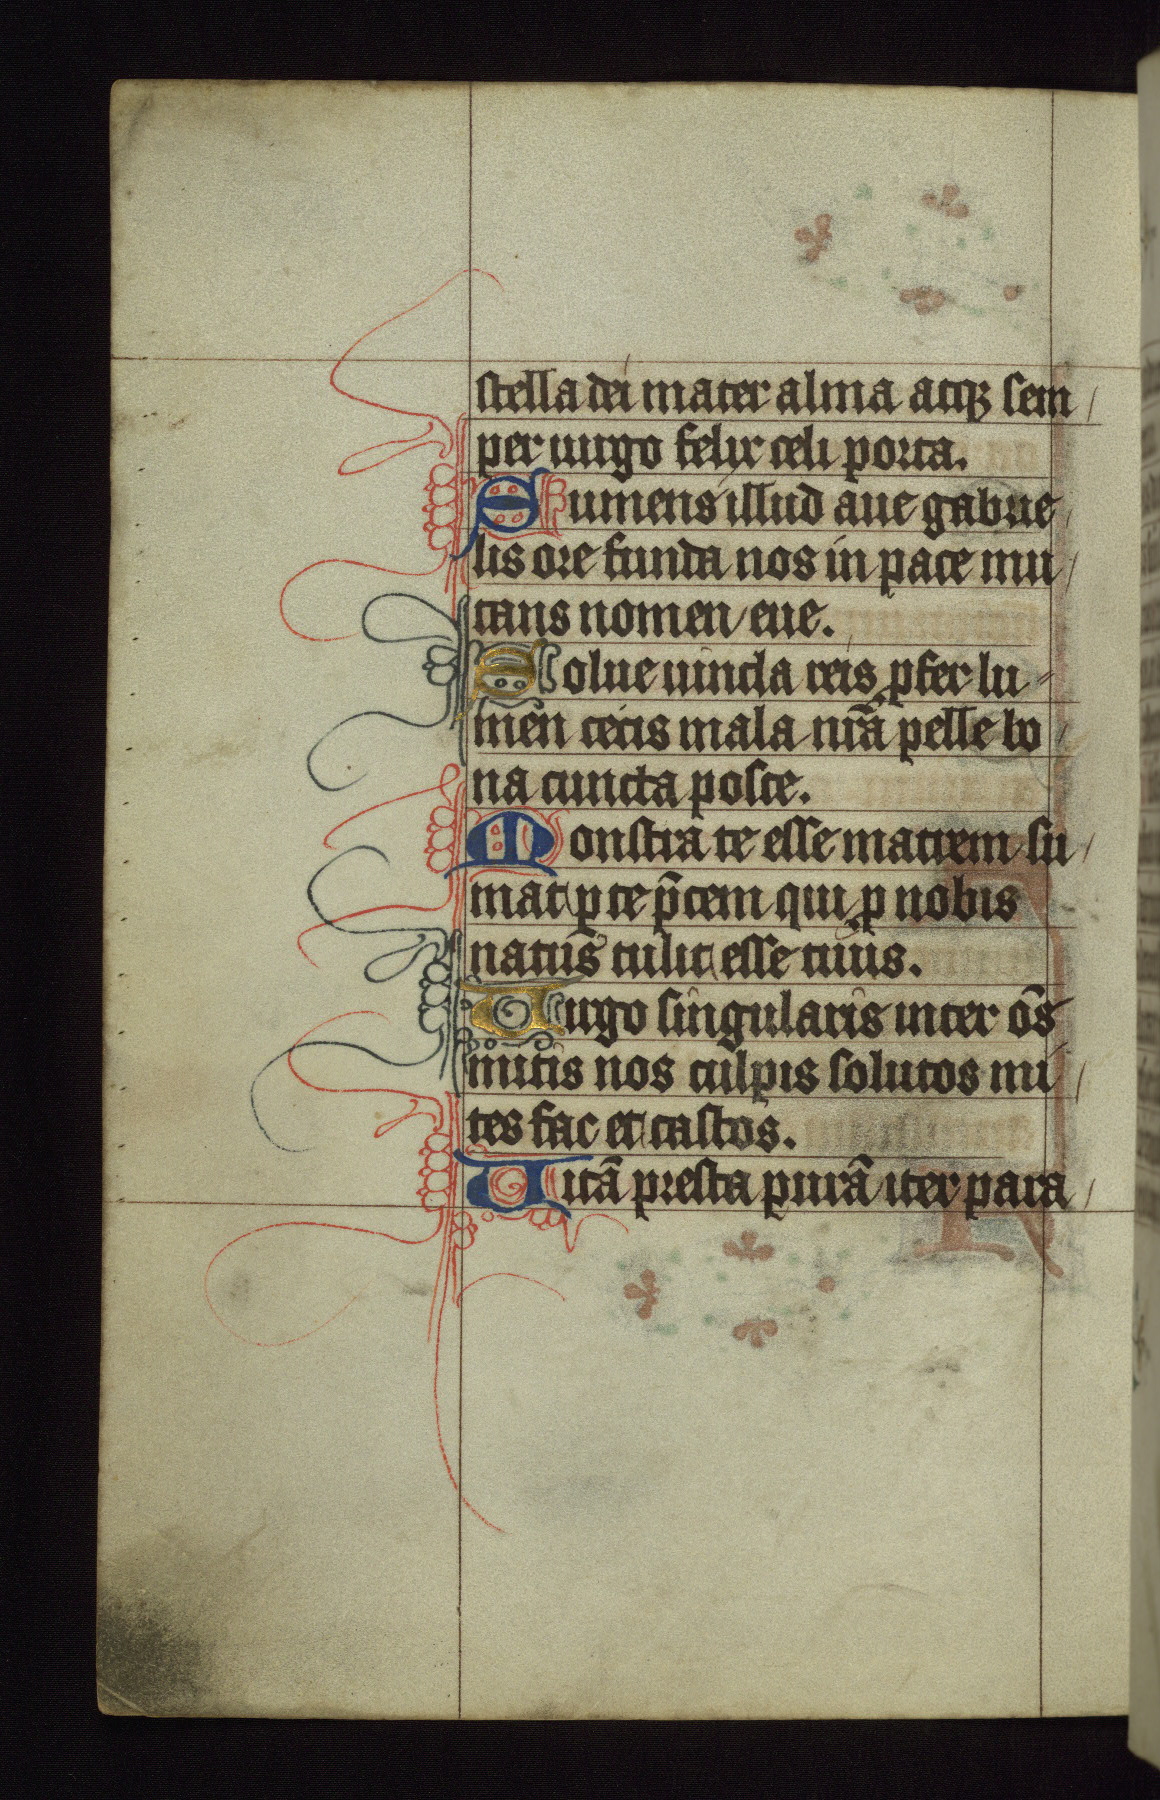 stella dei mater alma atqꝫ sem
per uirgo felix celi porta.
Sumens illud aue gabrie
lis ore funda nos in pace mu
tans nomen eue.
Solue uincla reis ꝓfer lu
men cecis mala nr̃a pelle bo
na cuncta posce.
Monstra te esse matrem su
mat ꝑ te p̃cem qui ꝓ nobis
natus tulit esse tuus.
Uirgo singularis inter om̃s
mitis nos culpis solutos mi
tes fac et castos.
Uitã presta purã iter para